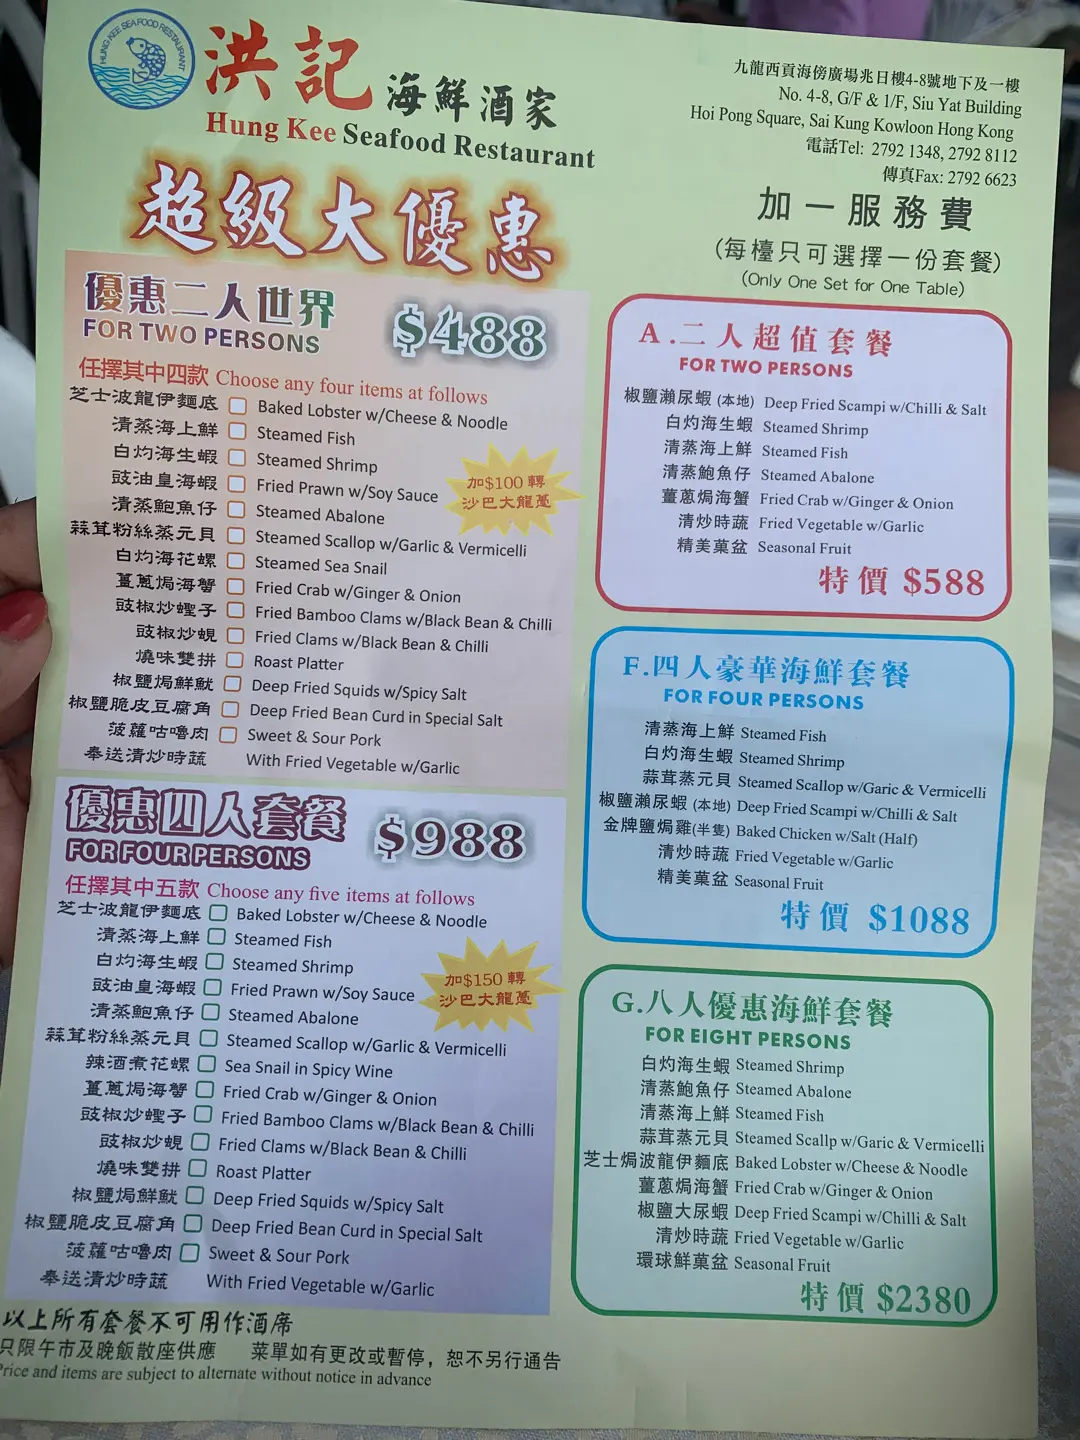 HUNG KEE SEAFOOD RESTAURANT
洪記海鮮酒家
Hung Kee Seafood Restaurant
九龍西貢海傍廣場兆日樓4-8號地下及一樓
No. 4-8, G/F & 1/F, Siu Yat Building
Hoi Pong Square, Sai Kung Kowloon Hong Kong
電話Tel: 2792 1348, 2792 8112
傳真Fax: 2792 6623
超級大優惠
加一服務費
(每檯只可選擇一份套餐)
(Only One Set for One Table)
優惠二人世界 $488
FOR TWO PERSONS
任擇其中四款 Choose any four items at follows
芝士波龍伊麵底 Baked Lobster w/Cheese & Noodle
清蒸海上鮮 Steamed Fish
白灼海生蝦 Steamed Shrimp
豉油皇海蝦 Fried Prawn w/Soy Sauce
清蒸鮑魚仔 Steamed Abalone
蒜茸粉絲蒸元貝 Steamed Scallop w/Garlic & Vermicelli
白灼海花螺 Steamed Sea Snail
薑蔥焗海蟹 Fried Crab w/Ginger & Onion
豉椒炒蟶子 Fried Bamboo Clams w/Black Bean & Chilli
豉椒炒蜆 Fried Clams w/Black Bean & Chilli
燒味雙拼 Roast Platter
椒鹽焗鮮魷 Deep Fried Squids w/Spicy Salt
椒鹽脆皮豆腐角 Deep Fried Bean Curd in Special Salt
菠蘿咕嚕肉 Sweet & Sour Pork
奉送清炒時蔬 With Fried Vegetable w/Garlic
加$100 轉
沙巴大龍躉
優惠四人套餐 $988
FOR FOUR PERSONS
任擇其中五款 Choose any five items at follows
芝士波龍伊麵底 Baked Lobster w/Cheese & Noodle
清蒸海上鮮 Steamed Fish
白灼海生蝦 Steamed Shrimp
豉油皇海蝦 Fried Prawn w/Soy Sauce
清蒸鮑魚仔 Steamed Abalone
蒜茸粉絲蒸元貝 Steamed Scallop w/Garlic & Vermicelli
辣酒煮花螺 Sea Snail in Spicy Wine
薑蔥焗海蟹 Fried Crab w/Ginger & Onion
豉椒炒蟶子 Fried Bamboo Clams w/Black Bean & Chilli
豉椒炒蜆 Fried Clams w/Black Bean & Chilli
燒味雙拼 Roast Platter
椒鹽焗鮮魷 Deep Fried Squids w/Spicy Salt
椒鹽脆皮豆腐角 Deep Fried Bean Curd in Special Salt
菠蘿咕嚕肉 Sweet & Sour Pork
奉送清炒時蔬 With Fried Vegetable w/Garlic
加$150 轉
沙巴大龍躉
A.二人超值套餐
FOR TWO PERSONS
椒鹽瀨尿蝦 (本地) Deep Fried Scampi w/Chilli & Salt
白灼海生蝦 Steamed Shrimp
清蒸海上鮮 Steamed Fish
清蒸鮑魚仔 Steamed Abalone
薑蔥焗海蟹 Fried Crab w/Ginger & Onion
清炒時蔬 Fried Vegetable w/Garlic
精美菓盆 Seasonal Fruit
特價 $588
F.四人豪華海鮮套餐
FOR FOUR PERSONS
清蒸海上鮮 Steamed Fish
白灼海生蝦 Steamed Shrimp
蒜茸蒸元貝 Steamed Scallop w/Garic & Vermicelli
椒鹽瀨尿蝦 (本地) Deep Fried Scampi w/Chilli & Salt
金牌鹽焗雞(半隻) Baked Chicken w/Salt (Half)
清炒時蔬 Fried Vegetable w/Garlic
精美菓盆 Seasonal Fruit
特價 $1088
G.八人優惠海鮮套餐
FOR EIGHT PERSONS
白灼海生蝦 Steamed Shrimp
清蒸鮑魚仔 Steamed Abalone
清蒸海上鮮 Steamed Fish
蒜茸蒸元貝 Steamed Scallp w/Garic & Vermicelli
芝士焗波龍伊麵底 Baked Lobster w/Cheese & Noodle
薑蔥焗海蟹 Fried Crab w/Ginger & Onion
椒鹽大尿蝦 Deep Fried Scampi w/Chilli & Salt
清炒時蔬 Fried Vegetable w/Garlic
環球鮮菓盆 Seasonal Fruit
特價 $2380
以上所有套餐不可用作酒席
只限午市及晚飯散座供應 菜單如有更改或暫停，恕不另行通告
Price and items are subject to alternate without notice in advance